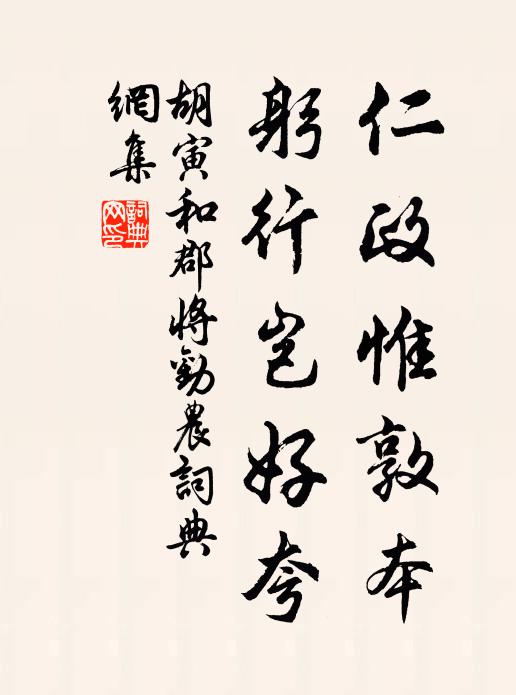 仁政惟敦本
躬行岂好夸
胡寅和郡将劝农詞典
網集
詞典
网印